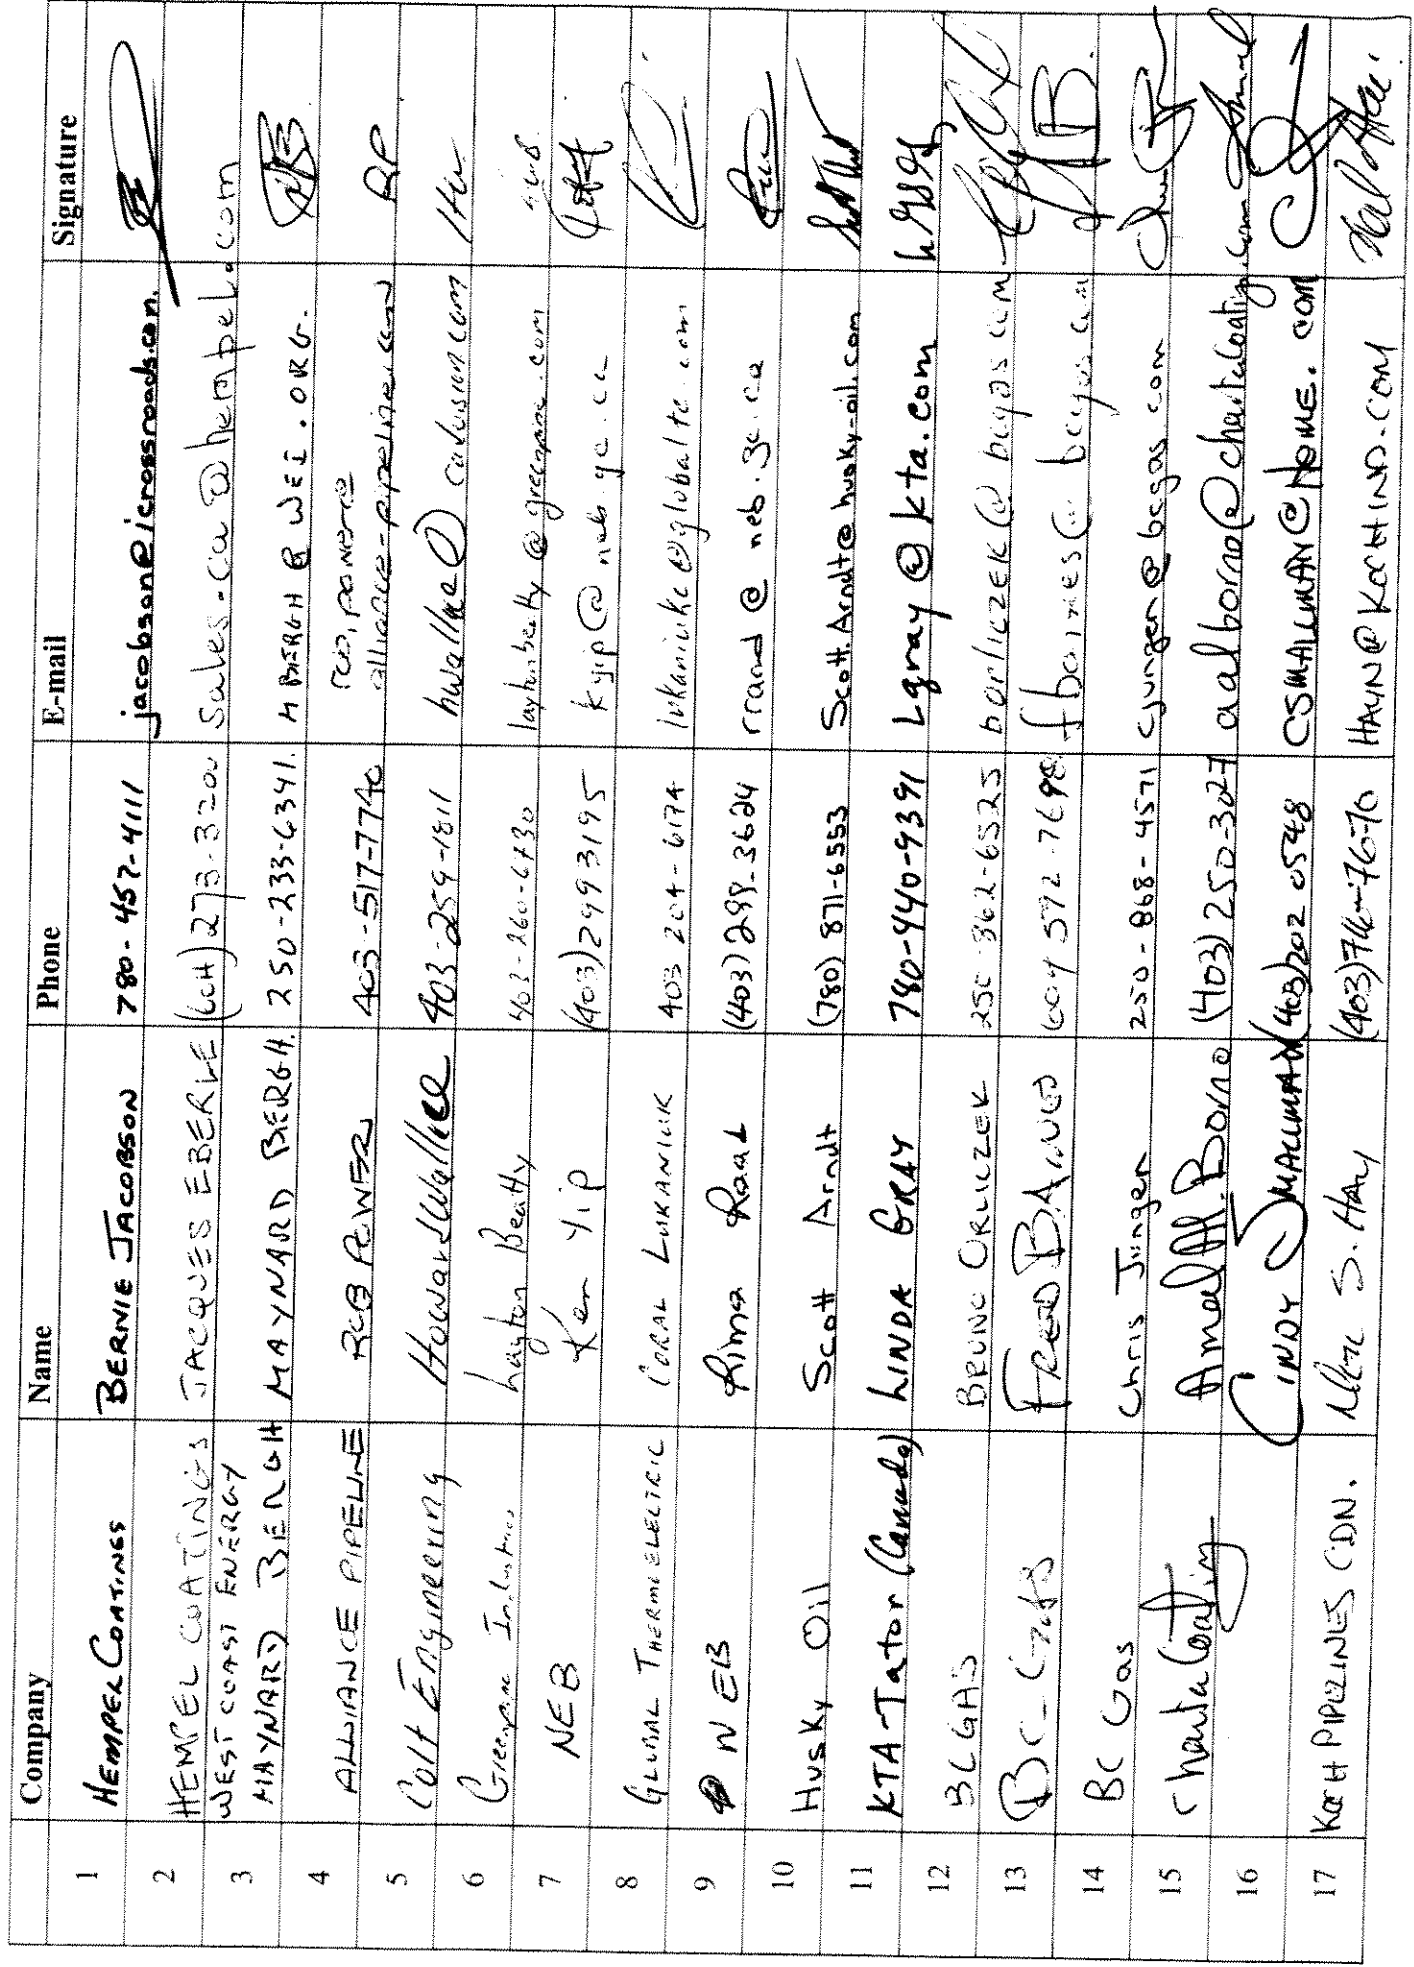 Company Name Phone E-mail Signature
1 HEMPEL COATINGS BERNIE JACOBSON 780-457-4111 jacobson@icrossroads.com
2 HEMPEL COATINGS JACQUES EBERLE (604) 273-3200 Sales-ca@hempel.com
WEST COAST ENERGY
3 MAYNARD BERGH MAYNARD BERGH. 250-233-6341. MBERGH@WEI.ORG.
4 ALLIANCE PIPELINE ROB POWER 403-517-7740
alliance-pipeline.com RP
5 Colt Engineering Howard Wallace 403-259-1811 hwallace@
6 Greenpipe Industries Layton Beatty 403-260-6730 laytonbeatty@greenpipe.com
7 NEB Ken Yip (403) 2993195 kyip@neb.gc.ca
8 GLOBAL THERMOELECTRIC CORAL LUKANIUK 403 204-6174 lukaniukc@globalte.com
9 NEB Rima (403) 299-3624 @neb.gc.ca
10 Husky Oil Scott Arndt (780) 871-6553 Scott.Arndt@husky-oil.com
11 KTA-Tator (Canada) LINDA GRAY 780-440-9391 Lgray@kta.com
12 BC GAS BRUNO ORLICZEK 250 862-6525 borliczek@bcgas.com
13 BC Gas FRED BARNES 604 592-7698 fbarnes@bcgas.com
14 BC Gas Chris Jungen 250-868-4571 cjungen@bcgas.com
15 Charta Coating Arnold A. Borno (403) 250-3027
16 CINDY SMALLMAN (403) 202 0548 CSMALLMAN@HOME.com
17 KOCH PIPELINES CDN. S. HAY HAYN@KOCHIND.COM